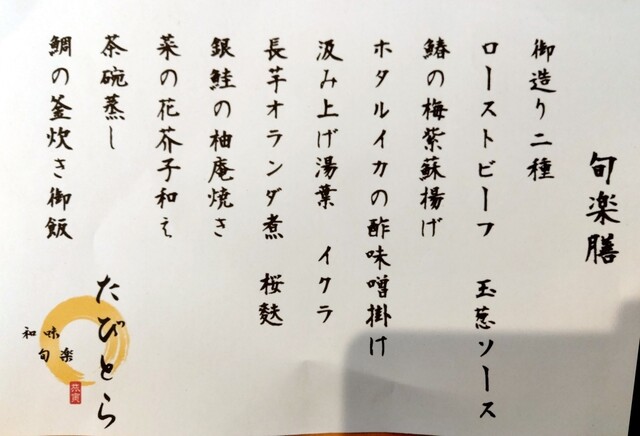 旬楽膳
御造り二種
ローストビーフ 玉葱ソース
鰆の梅紫蘇揚げ
ホタルイカの酢味噌掛け
汲み上げ湯葉 イクラ
長芋オランダ煮 桜麩
銀鮭の柚庵焼き
菜の花芥子和え
茶碗蒸し
鯛の釜炊き御飯
たびとら
和味
旬楽